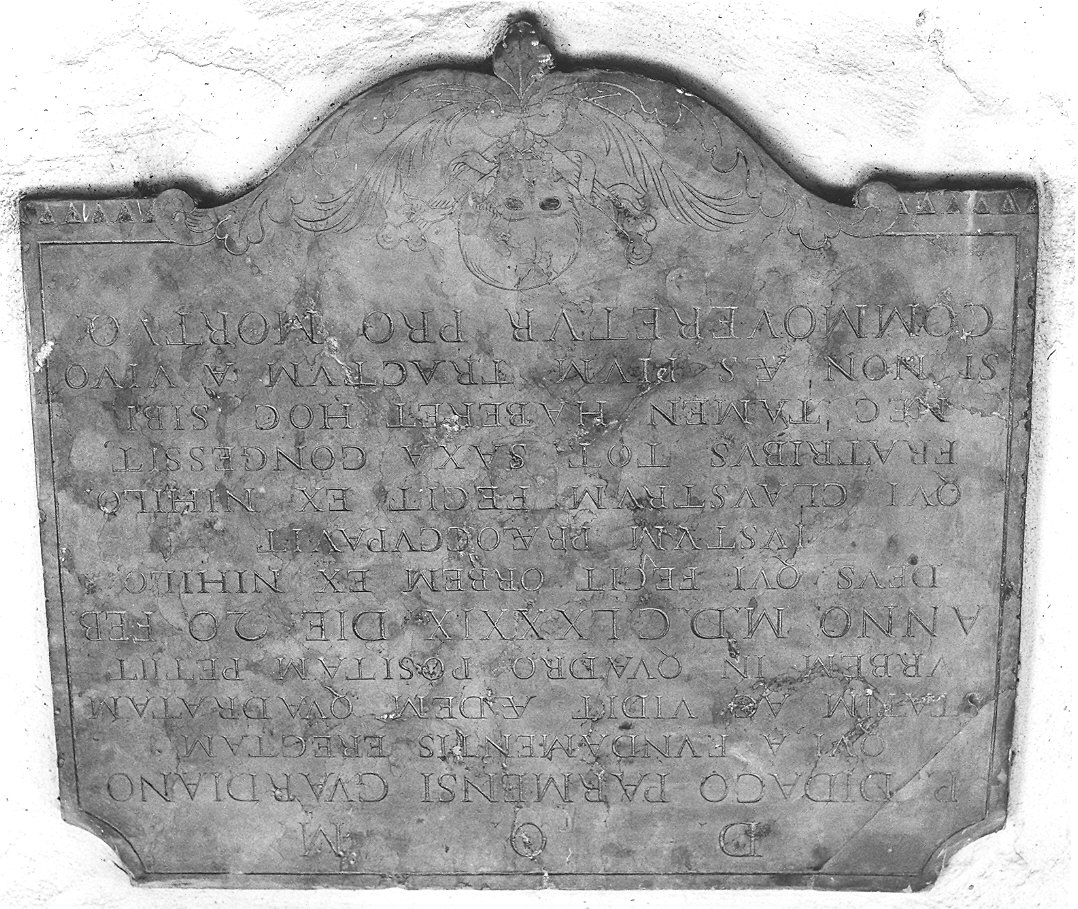 D O M
P. DIDACO PARMENSI GVARDIANO
QVI A FVNDAMENTIS ERECTAM
STATIM AC VIDIT ÆDEM QVADRATAM
VRBEM IN QVADRO POSITAM PETIIT
ANNO M.D.CLXXXIX DIE 20 FEB
DEVS QVI FECIT ORBEM EX NIHILO
IVSTVM PRÆOCCVPAVIT
QVI CLAVSTRVM FECIT EX NIHILO
FRATRIBVS TOT SAXA CONGESSIT
NEC TAMEN HABERET HOC SIBI
SI NON ÆS PIVM TRACTVM A VIVO
COMMOVERETVR PRO MORTVO